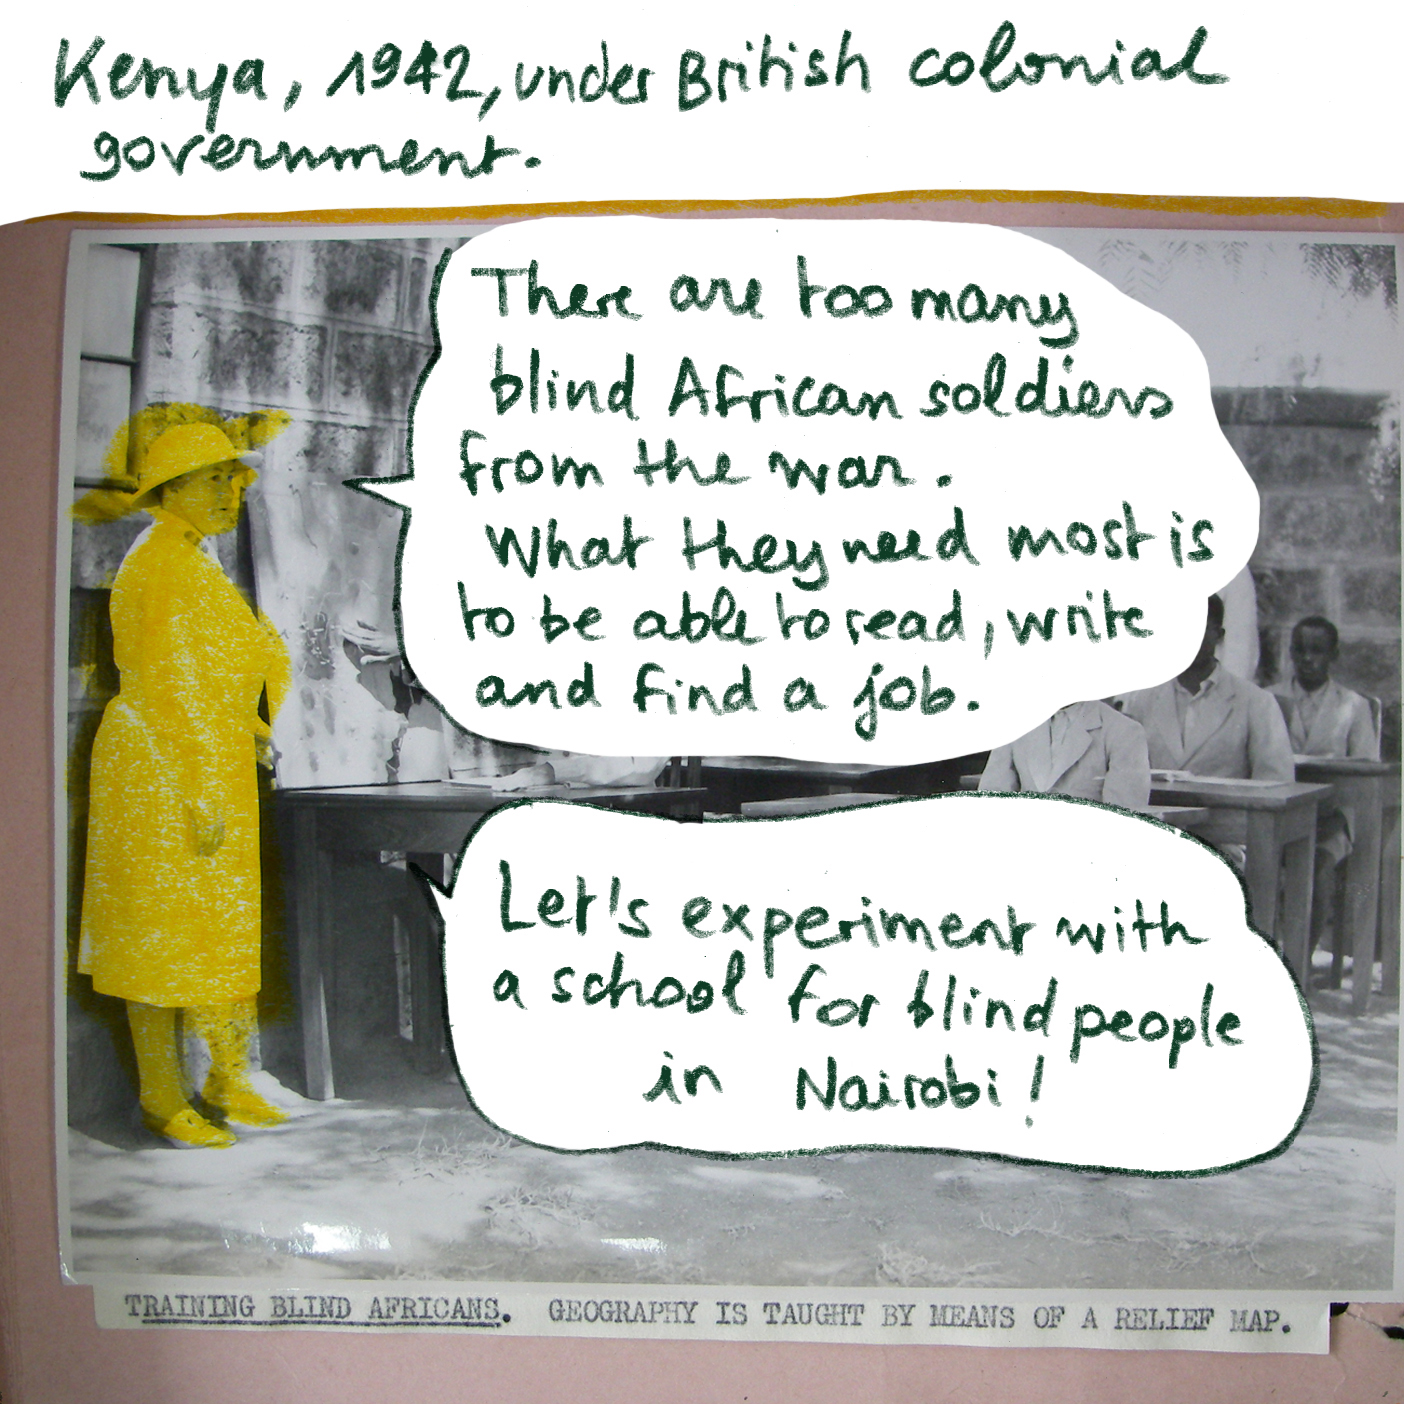 Kenya, 1942, under British colonial
government.
There are too many
blind African soldiers
from the war.
What they need most is
to be able to read, write
and find a job.
Let's experiment with
a school for blind people
in Nairobi!
TRAINING BLIND AFRICANS. GEOGRAPHY IS TAUGHT BY MEANS OF A RELIEF MAP.